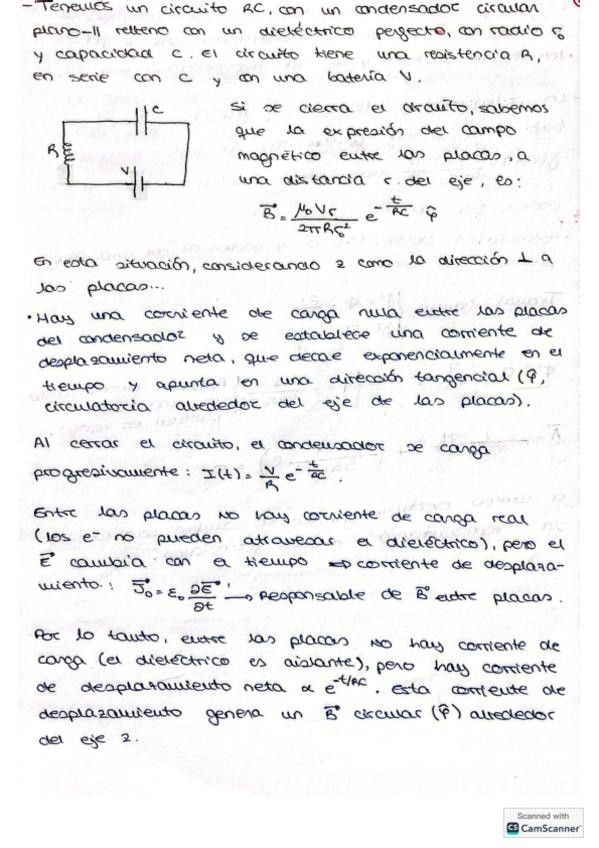 - Tenemos un circuito RC, con un condensador circular
plano-|| relleno con un dieléctrico perfecto, con radio ς
y capacidad C. El circuito tiene una resistencia R,
en serie con C y con una batería V.
C
R
V
Si se cierra el circuito, sabemos
que la expresión del campo
magnético entre las placas, a
una distancia r del eje, es:
B⃗ = μ₀Vr / 2πRς² e^(-t/RC) φ̂
En esta situación, considerando z como la dirección ⊥ a
las placas...
· Hay una corriente de carga nula entre las placas
del condensador y se establece una corriente de
desplazamiento neta, que decae exponencialmente en el
tiempo y apunta en una dirección tangencial (φ̂,
circulatoria alrededor del eje de las placas).
Al cerrar el circuito, el condensador se carga
progresivamente: I(t) = V/R e^(-t/RC).
Entre las placas NO hay corriente de carga real
(los e⁻ no pueden atravesar el dieléctrico), pero el
E⃗ cambia con el tiempo ⇒ corriente de desplaza-
miento: J⃗₀ = ε₀ ∂E⃗/∂t → Responsable de B⃗ entre placas.
Por lo tanto, entre las placas NO hay corriente de
carga (el dieléctrico es aislante), pero hay corriente
de desplazamiento neta ∝ e^(-t/RC). Esta corriente de
desplazamiento genera un B⃗ circular (φ̂) alrededor
del eje z.
Scanned with
CS CamScanner